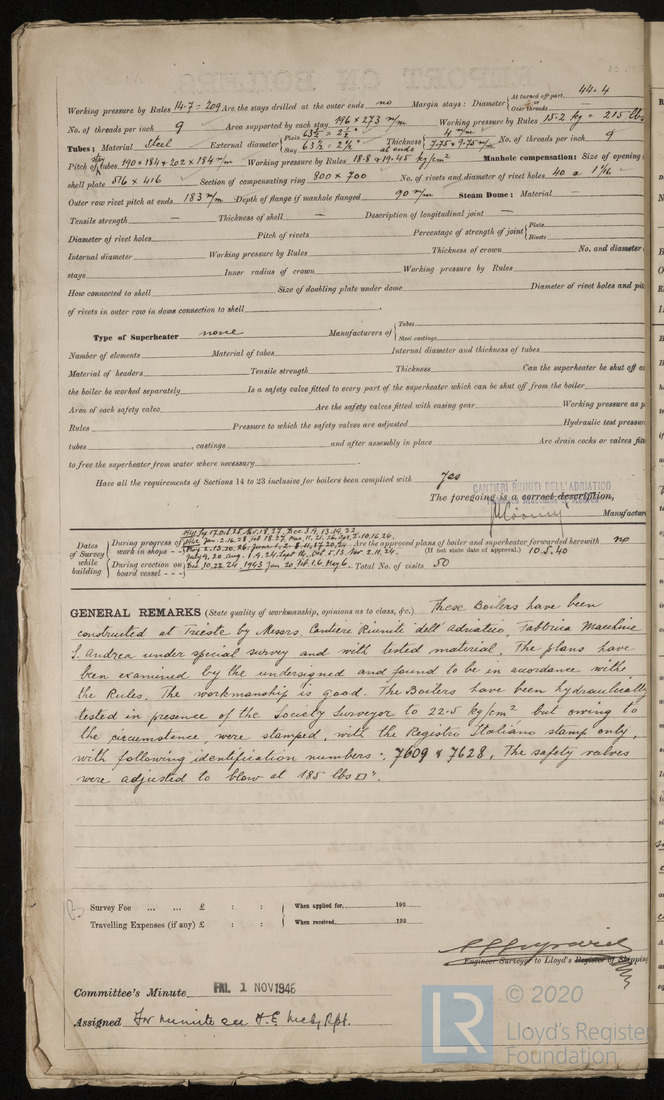 At turned off part. 44.4
Working pressure by Rules 14.7 = 209 Are the stays drilled at the outer ends no Margin stays: Diameter Over threads —
No. of threads per inch 9 Area supported by each stay 196 × 273 m/m Working pressure by Rules 15.2 kg = 215 lbs
Tubes: Material Steel External diameter Plain 63½ = 2½" Stay 63½ = 2½" Thickness 4 m/m 7.75 & 9.75 m/m at ends No. of threads per inch 9
Pitch of stay tubes 190 × 184 & 202 × 184 m/m Working pressure by Rules 18.8 & 19.45 kg/cm² Manhole compensation: Size of opening
shell plate 516 × 416 Section of compensating ring 800 × 700 No. of rivets and diameter of rivet holes 40 a 1 1/16
Outer row rivet pitch at ends 183 m/m Depth of flange if manhole flanged 90 m/m Steam Dome: Material —
Tensile strength — Thickness of shell — Description of longitudinal joint —
Diameter of rivet holes Pitch of rivets Percentage of strength of joint Plate Rivets
Internal diameter Working pressure by Rules Thickness of crown No. and diameter
stays Inner radius of crown Working pressure by Rules
How connected to shell Size of doubling plate under dome Diameter of rivet holes and pi
of rivets in outer row in dome connection to shell
Type of Superheater none Manufacturers of Tubes Steel castings
Number of elements Material of tubes Internal diameter and thickness of tubes
Material of headers Tensile strength Thickness Can the superheater be shut off a
the boiler be worked separately Is a safety valve fitted to every part of the superheater which can be shut off from the boiler
Area of each safety valve Are the safety valves fitted with easing gear Working pressure as p
Rules Pressure to which the safety valves are adjusted Hydraulic test pressure
tubes , castings and after assembly in place Are drain cocks or valves fit
to free the superheater from water where necessary
Have all the requirements of Sections 14 to 23 inclusive for boilers been complied with yes
CANTIERI RIUNITI DELL'ADRIATICO
The foregoing is a correct description,
Manufactur
Dates of Survey while building
During progress of work in shops - -
Are the approved plans of boiler and superheater forwarded herewith no
(If not state date of approval.) 10.5.40
During erection on board vessel - - - Dec 10.22.24 1943 Jan 20 Feb 1.6. May 6. Total No. of visits 50
GENERAL REMARKS (State quality of workmanship, opinions as to class, &c.) These Boilers have been
constructed at Trieste by Messrs. Cantieri Riuniti dell' Adriatico, Fabbrica Macchine
S. Andrea under special survey and with tested material. The plans have
been examined by the undersigned and found to be in acordance withe
the Rules. The workmanship is good. The Boilers have been hydraulically
tested in presence of the Society Surveyor to 22.5 kg/cm² but owing to
the circumstance, were stamped, with the Registro Italiano stamp only,
with following identification numbers: 7609 & 7628. The safety valves
were adjusted to blow at 185 lbs □".
Survey Fee ... ... £ : : When applied for, 192
Travelling Expenses (if any) £ : : When received, 192
Engineer Surveyor to Lloyd's Register of Shipping
Committee's Minute FRI. 1 NOV 1946
Assigned For minute see F.E. Mchy Rpt.
LR © 2020
Lloyd's Register
Foundation